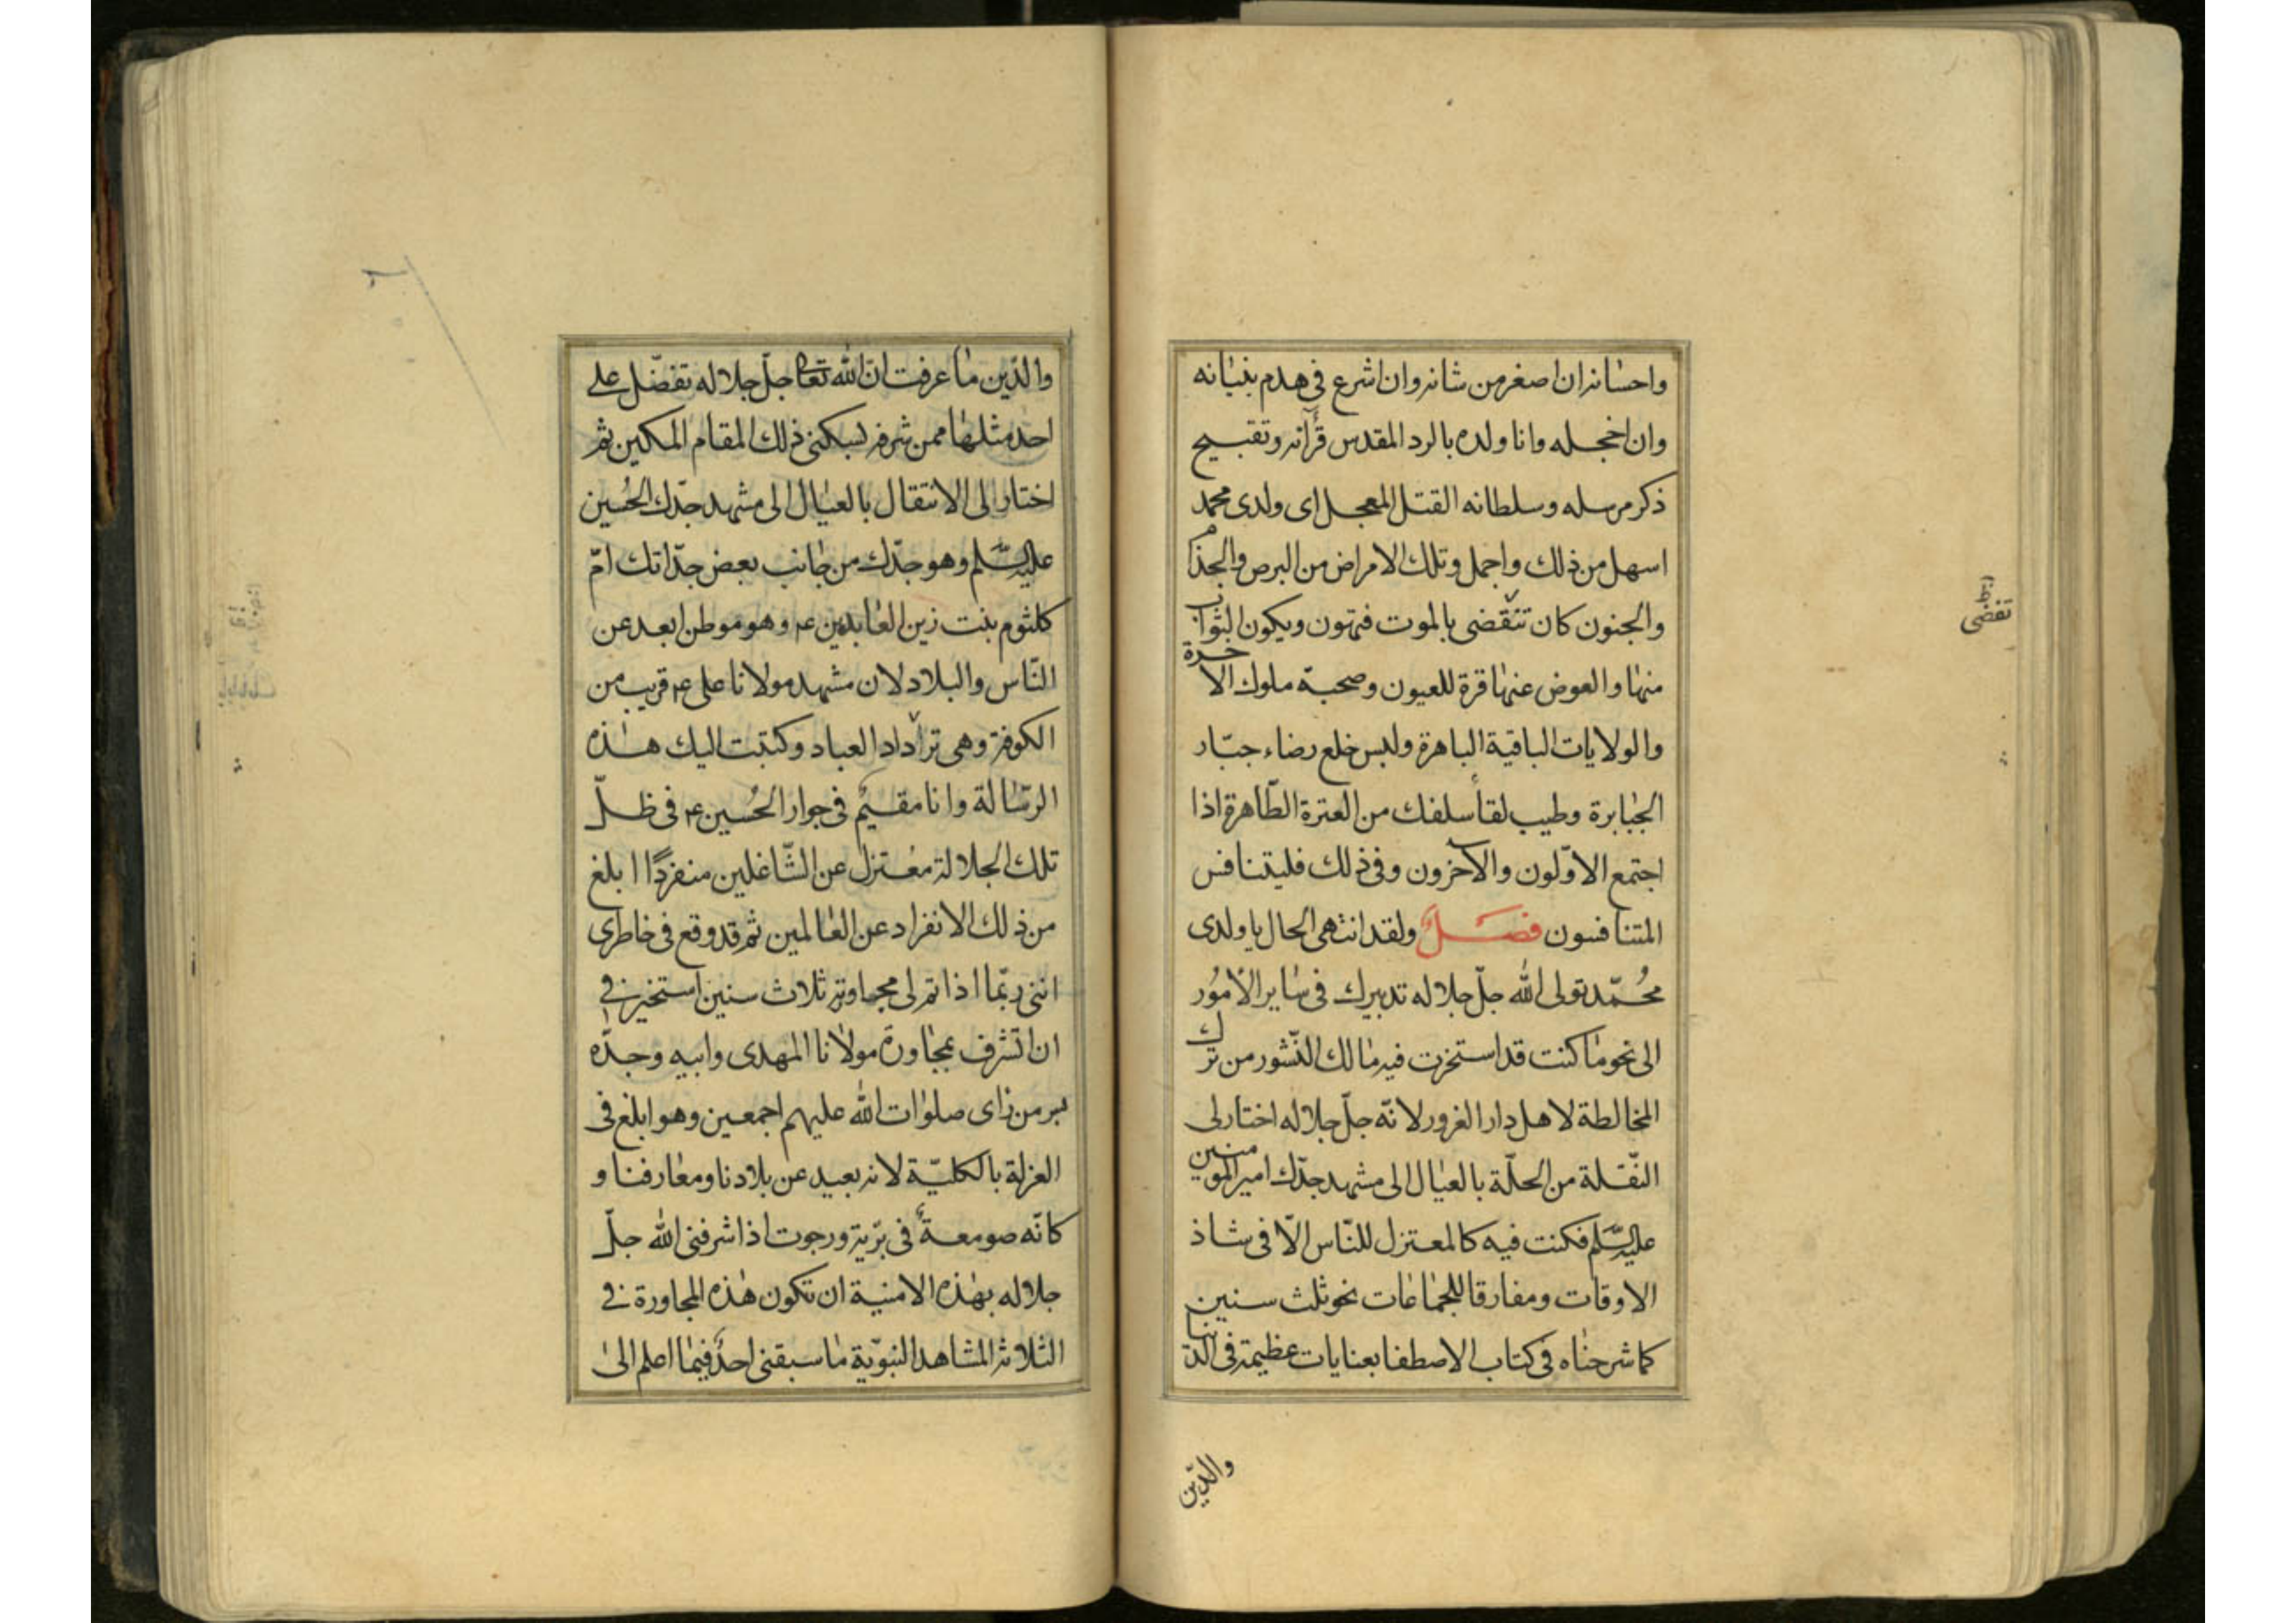 واحسانه ان اصغر من شانه وان اشرع فى هدم بنيانه
وان اخجله وانا ولده بالرد المقدس قرآنه وتقبيح
ذكر مرسله وسلطانه القتل المعجل اى ولدى محمد
اسهل من ذلك واجمل وتلك الامراض من البرص والجذام
والجنون كان تنقضى بالموت فتهون ويكون الثواب
منها والعوض عنها قرة للعيون وصحبة ملوك الاخرة
والولايات الباقية الباهرة ولبس خلع رضاء جبّار
الجبابرة وطيب لقاء سلفك من العترة الطّاهرة اذا
اجتمع الاوّلون والآخرون وفى ذلك فليتنافس
المتنافسون فصلٌ ولقد انتهى الحال يا ولدى
محُمّد تولى الله جلّ جلاله تدبيرك فى ساير الاُمُور
الى نحو ما كنت قد استخرت فيه مالك النّشور من ترك
المخالطة لاهل دار الغرور لانّه جلّ جلاله اختار لى
النّقلة من الحلّة بالعيال الى مشهد جدّك امير المومنين
عليه السّلم فكنت فيه كالمعتزل للنّاس الّا فى شاذ
الاوقات ومفارقا للجماعات نحو ثلث سنين
كما شرحناه فى كتاب الاصطفا بعنايات عظيمة فى الدنيا
تفضى
والدّين
والدّين ما عرفت انّ الله تعالى جلّ جلاله تفضّل على
احد مثلها ممن شرفه بسكنى ذلك المقام المكين ثم
اختار لى الانتقال بالعيال الى مشهد جدّك الحُسين
عليه السّلم وهو جدّك من جانب بعض جدّاتك امّ
كلثوم بنت زين العابدين ع وهو موطن ابعد عن
النّاس والبلاد لان مشهد مولانا على ع قريب من
الكوفة وهى ترداد العباد وكتبت اليك هذه
الرسّالة وانا مقيمٌ فى جوار الحُسين ع فى ظلّ
تلك الجلالة مُعتزل عن الشّاغلين منفردًا ابلغ
من ذلك الانفراد عن العالمين ثم قد وقع فى خاطرى
اننى ربّما اذا تم لى مجاورته ثلاث سنين استخيره فى
ان اتشرف بمجاورة مولانا المهدى وابيه وجدّه
بسر من راى صلوات الله عليهم اجمعين وهو ابلغ فى
العزلة بالكليّة لانه بعيد عن بلادنا ومعارفنا و
كانّه صومعةٌ فى برّية ورجوت اذا شرفنى الله جلّ
جلاله بهذه الامنية ان تكون هذه المجاورة فى
الثلاثة المشاهد النبويّة ما سبقنى احدٌ فيما اعلم الى